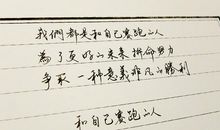 我們都是和自己賽跑的人
為了更好的未來拼命努力
爭取一種意義非凡的勝利
和自己賽跑的人